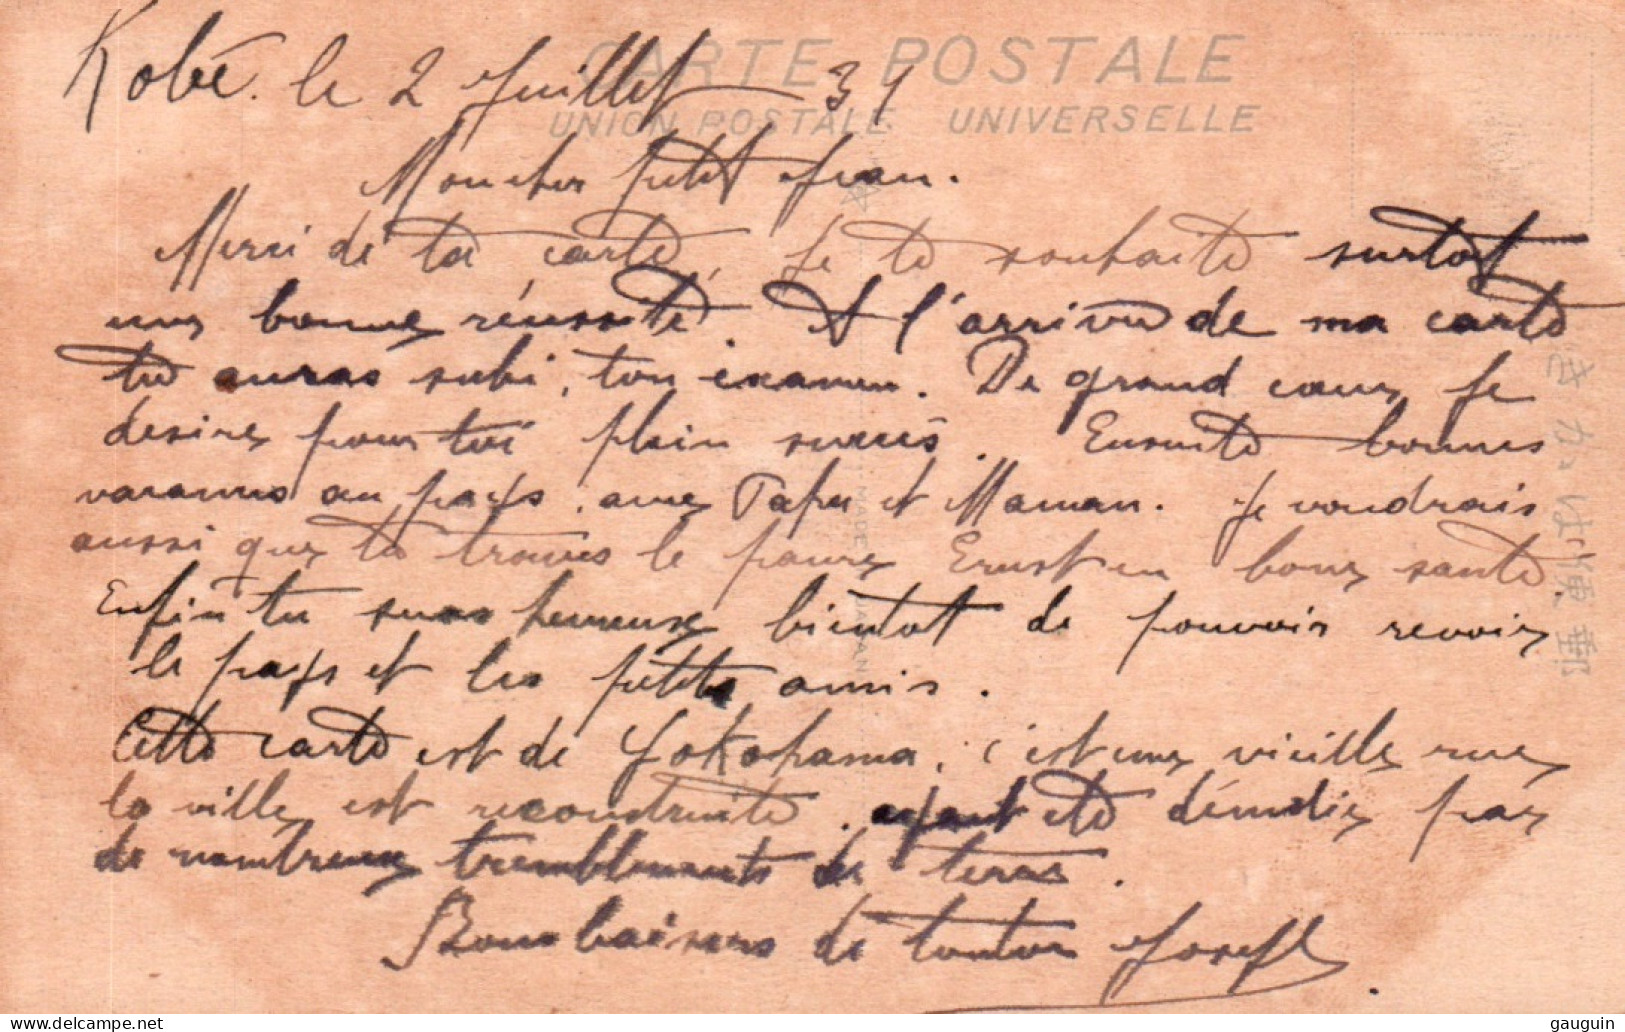 CARTE POSTALE
UNION POSTALE UNIVERSELLE
Kobé. le 2 Juillet 31
Mon cher petit Jean.
Merci de ta carte, Je te souhaite surtot
une bonne réussite. A l'arrivée de ma carte
tu auras subi, ton examen. De grand cœur Je
desire pour toi plein succés. Ensuite bonnes
vacances au pays, avec Papa et Maman. Je voudrais
aussi que tu trouves le pauvre Ernest en bonne santé.
Enfin tu seras heureuse bientot de pouvoir revoir
le pays et les petits amis.
Cette carte est de Yokohama, c'est une vieille rue
la ville est reconstruite, ayant eté démolie par
de nombreux tremblements de terre.
Bons baisers de tonton Joseph
MADE JAPAN
きかは便郵
gauguin ©